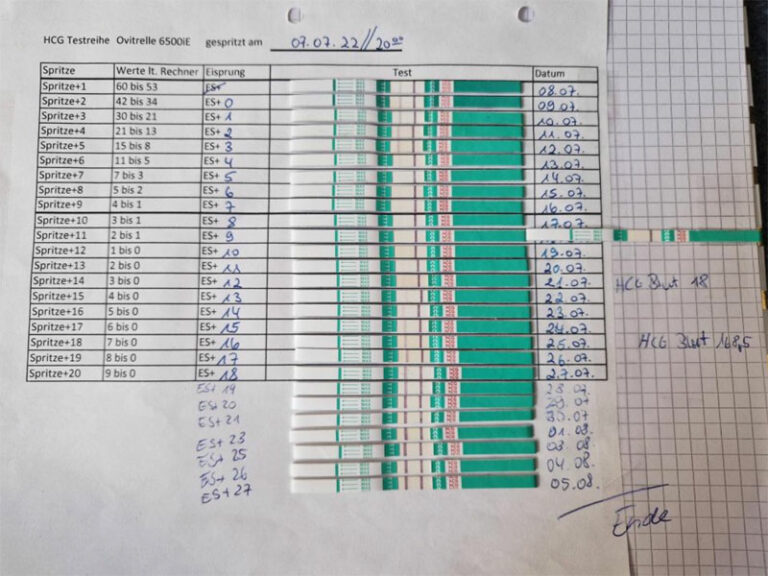 HCG Testreihe Ovitrelle 6500iE gespritzt am 07.07.22//20⁰⁰
Spritze Werte lt. Rechner Eisprung Test Datum
Spritze+1 60 bis 53 ES+ 08.07.
Spritze+2 42 bis 34 ES+ 0 09.07.
Spritze+3 30 bis 21 ES+ 1 10.07.
Spritze+4 21 bis 13 ES+ 2 11.07.
Spritze+5 15 bis 8 ES+ 3 12.07.
Spritze+6 11 bis 5 ES+ 4 13.07.
Spritze+7 7 bis 3 ES+ 5 14.07.
Spritze+8 5 bis 2 ES+ 6 15.07.
Spritze+9 4 bis 1 ES+ 7 16.07.
Spritze+10 3 bis 1 ES+ 8 17.07.
Spritze+11 2 bis 1 ES+ 9
Spritze+12 1 bis 0 ES+ 10 19.07.
Spritze+13 2 bis 0 ES+ 11 20.07.
Spritze+14 3 bis 0 ES+ 12 21.07. HCG Blut 18
Spritze+15 4 bis 0 ES+ 13 22.07.
Spritze+16 5 bis 0 ES+ 14 23.07.
Spritze+17 6 bis 0 ES+ 15 24.07.
Spritze+18 7 bis 0 ES+ 16 25.07. HCG Blut 168,5
Spritze+19 8 bis 0 ES+ 17 26.07.
Spritze+20 9 bis 0 ES+ 18 27.07.
ES+ 19 28.07
ES+ 20 29.07
ES+ 21 30.07
ES+ 23 01.08.
ES+ 25 03.08.
ES+ 26 04.08.
ES+ 27 05.08.
Ende